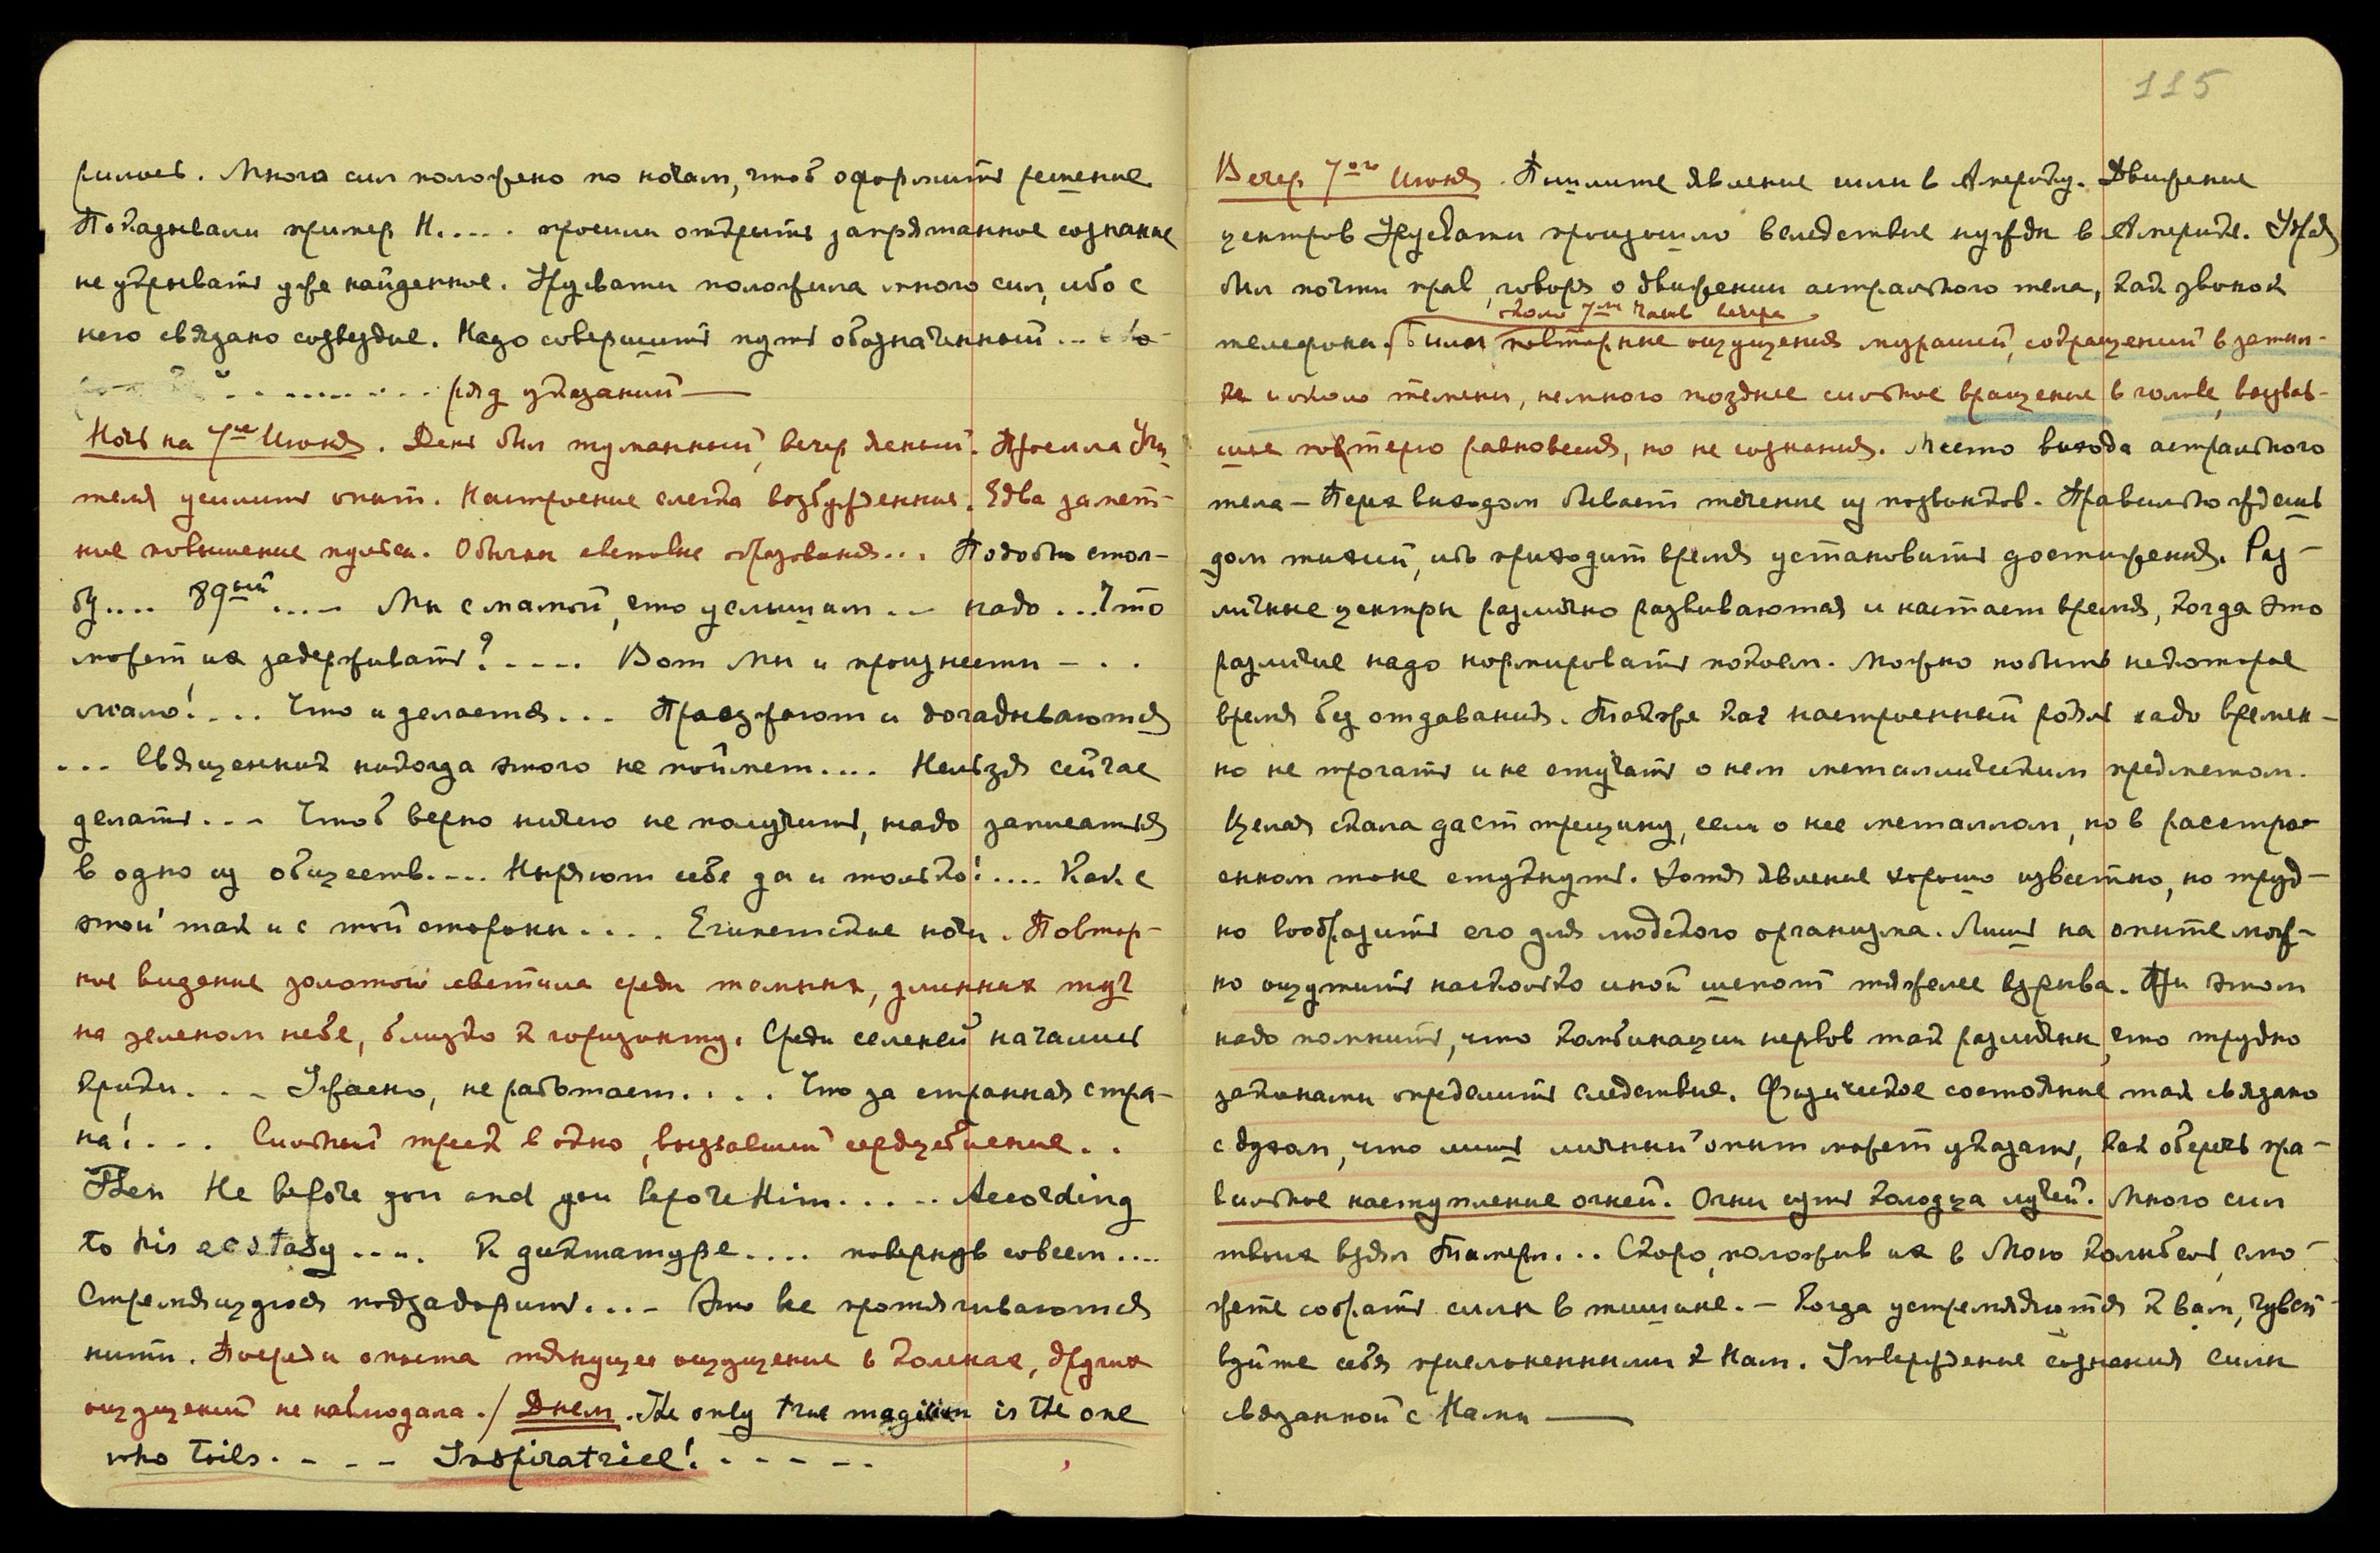 рилось. Много сил положено по ночам, чтоб оформить решение.
Показывали пример Н..... просили открыть запрятанное сознание
не укрывать уже найденное. Урусвати положила много сил, ибо с
него связано созвездие. Надо совершить путь обозначенный ...
......... ряд указаний —
Ночь на 7ое Июня. День был туманный, вечер ясный. Просила Учи
теля усилить опыт. Настроение слегка возбужденное. Едва замет-
ное повышение пульса. Обычны световые образования... Подобно стол-
бу.... 89ый .... Мы с мамой, что услышим ... надо ... Что
может их задерживать? .... Вот мы и произнести - ..
мало! .... Что и делается... Проезжают и догадываются
... Священник никогда этого не поймет.... Нельзя сейчас
делать... Чтоб верно ничего не получить, надо записаться
в одно из обществ.... Ныряют себе да и только! .... Как с
этой так и с той стороны.... Египетские ночи. Повтор-
ное видение золотого светила среди темных, длинных туч
на зеленом небе, близко к горизонту. Среди селений начались
крики... Ужасно, не работает.... Что за странная стра-
на! ... Сильный треск в окно, вызвавший сердцебиение..
Then He before you and you before Him..... According
to his ecstasy .... К диктатуре.... повернув совсем ....
Стремящуюся подзадорить.... Это все протягиваются
нити. Впереди опыта тянущее ощущение в коленах, других
ощущений не наблюдала./ Днем. The only true magician is the one
who toils. - - - Inspiratrice! .....
115
Вечер 7ого Июня. Пошлите явление силы в Америку. Движение
центров Урусвати произошло вследствие нужды в Америке. Удрая
был почти прав, говоря о движении астрального тела, как звонок
около 7ми часов вечера
телефона. Были повторные ощущения мурашей, сокращений в затыл-
ке и около темени, немного позднее сильное вращение в голове, вызвав-
шее потерю равновесия, но не сознания. Место выхода астрального
тела — Перед выходом бывает течение из позвонков. Правильно ждешь
дом тихий, ибо приходит время установить достижения. Раз-
личные центры различно развиваются и настает время, когда это
различие надо нормировать покоем. Можно побыть некоторое
время без отдавания. Также как настроенный рояль надо времен-
но не трогать и не стучать о нем металлическим предметом.
Целая скала даст трещину, если о нее металлом, но в расстро-
енном тоне стукнуть. Хотя явление хорошо известно, но труд-
но вообразить его для людского организма. Лишь на опыте мож-
но ощутить насколько иной шепот тяжелее взрыва. При этом
надо помнить, что комбинации нервов так различны, что трудно
законами определить следствие. Физическое состояние так связано
с духом, что лишь личный опыт может указать, как оберечь пра-
вильное наступление огней. Огни суть колодца лучей. Много сил
твоих взял Тамери... Скоро, положив их в Мою колыбель, смо-
жете собрать силы в тишине. — Когда устремляются к вам, чувст-
вуйте себя прислоненными к Нам. Утверждение сознания силы
связанной с Нами —